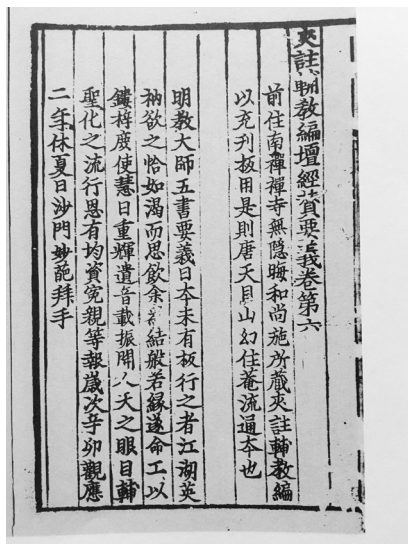 夾註輔教編壇經賛要義卷第六
前住南禪禪寺無隠晦和尚施所蔵夾註輔教編
以充刋板用是則唐天目山幻住菴流通夲也
明教大師五書要義日夲未有板行之者江湖英
衲欲之恰如渇而思飲余結般若縁遂命工以
鏤梓庶使慧日重輝遺音載振開人天之眼目輔
聖化之流行恩有均資寃親等報嵗次辛卯觀應
二年休夏日沙門妙葩拜手